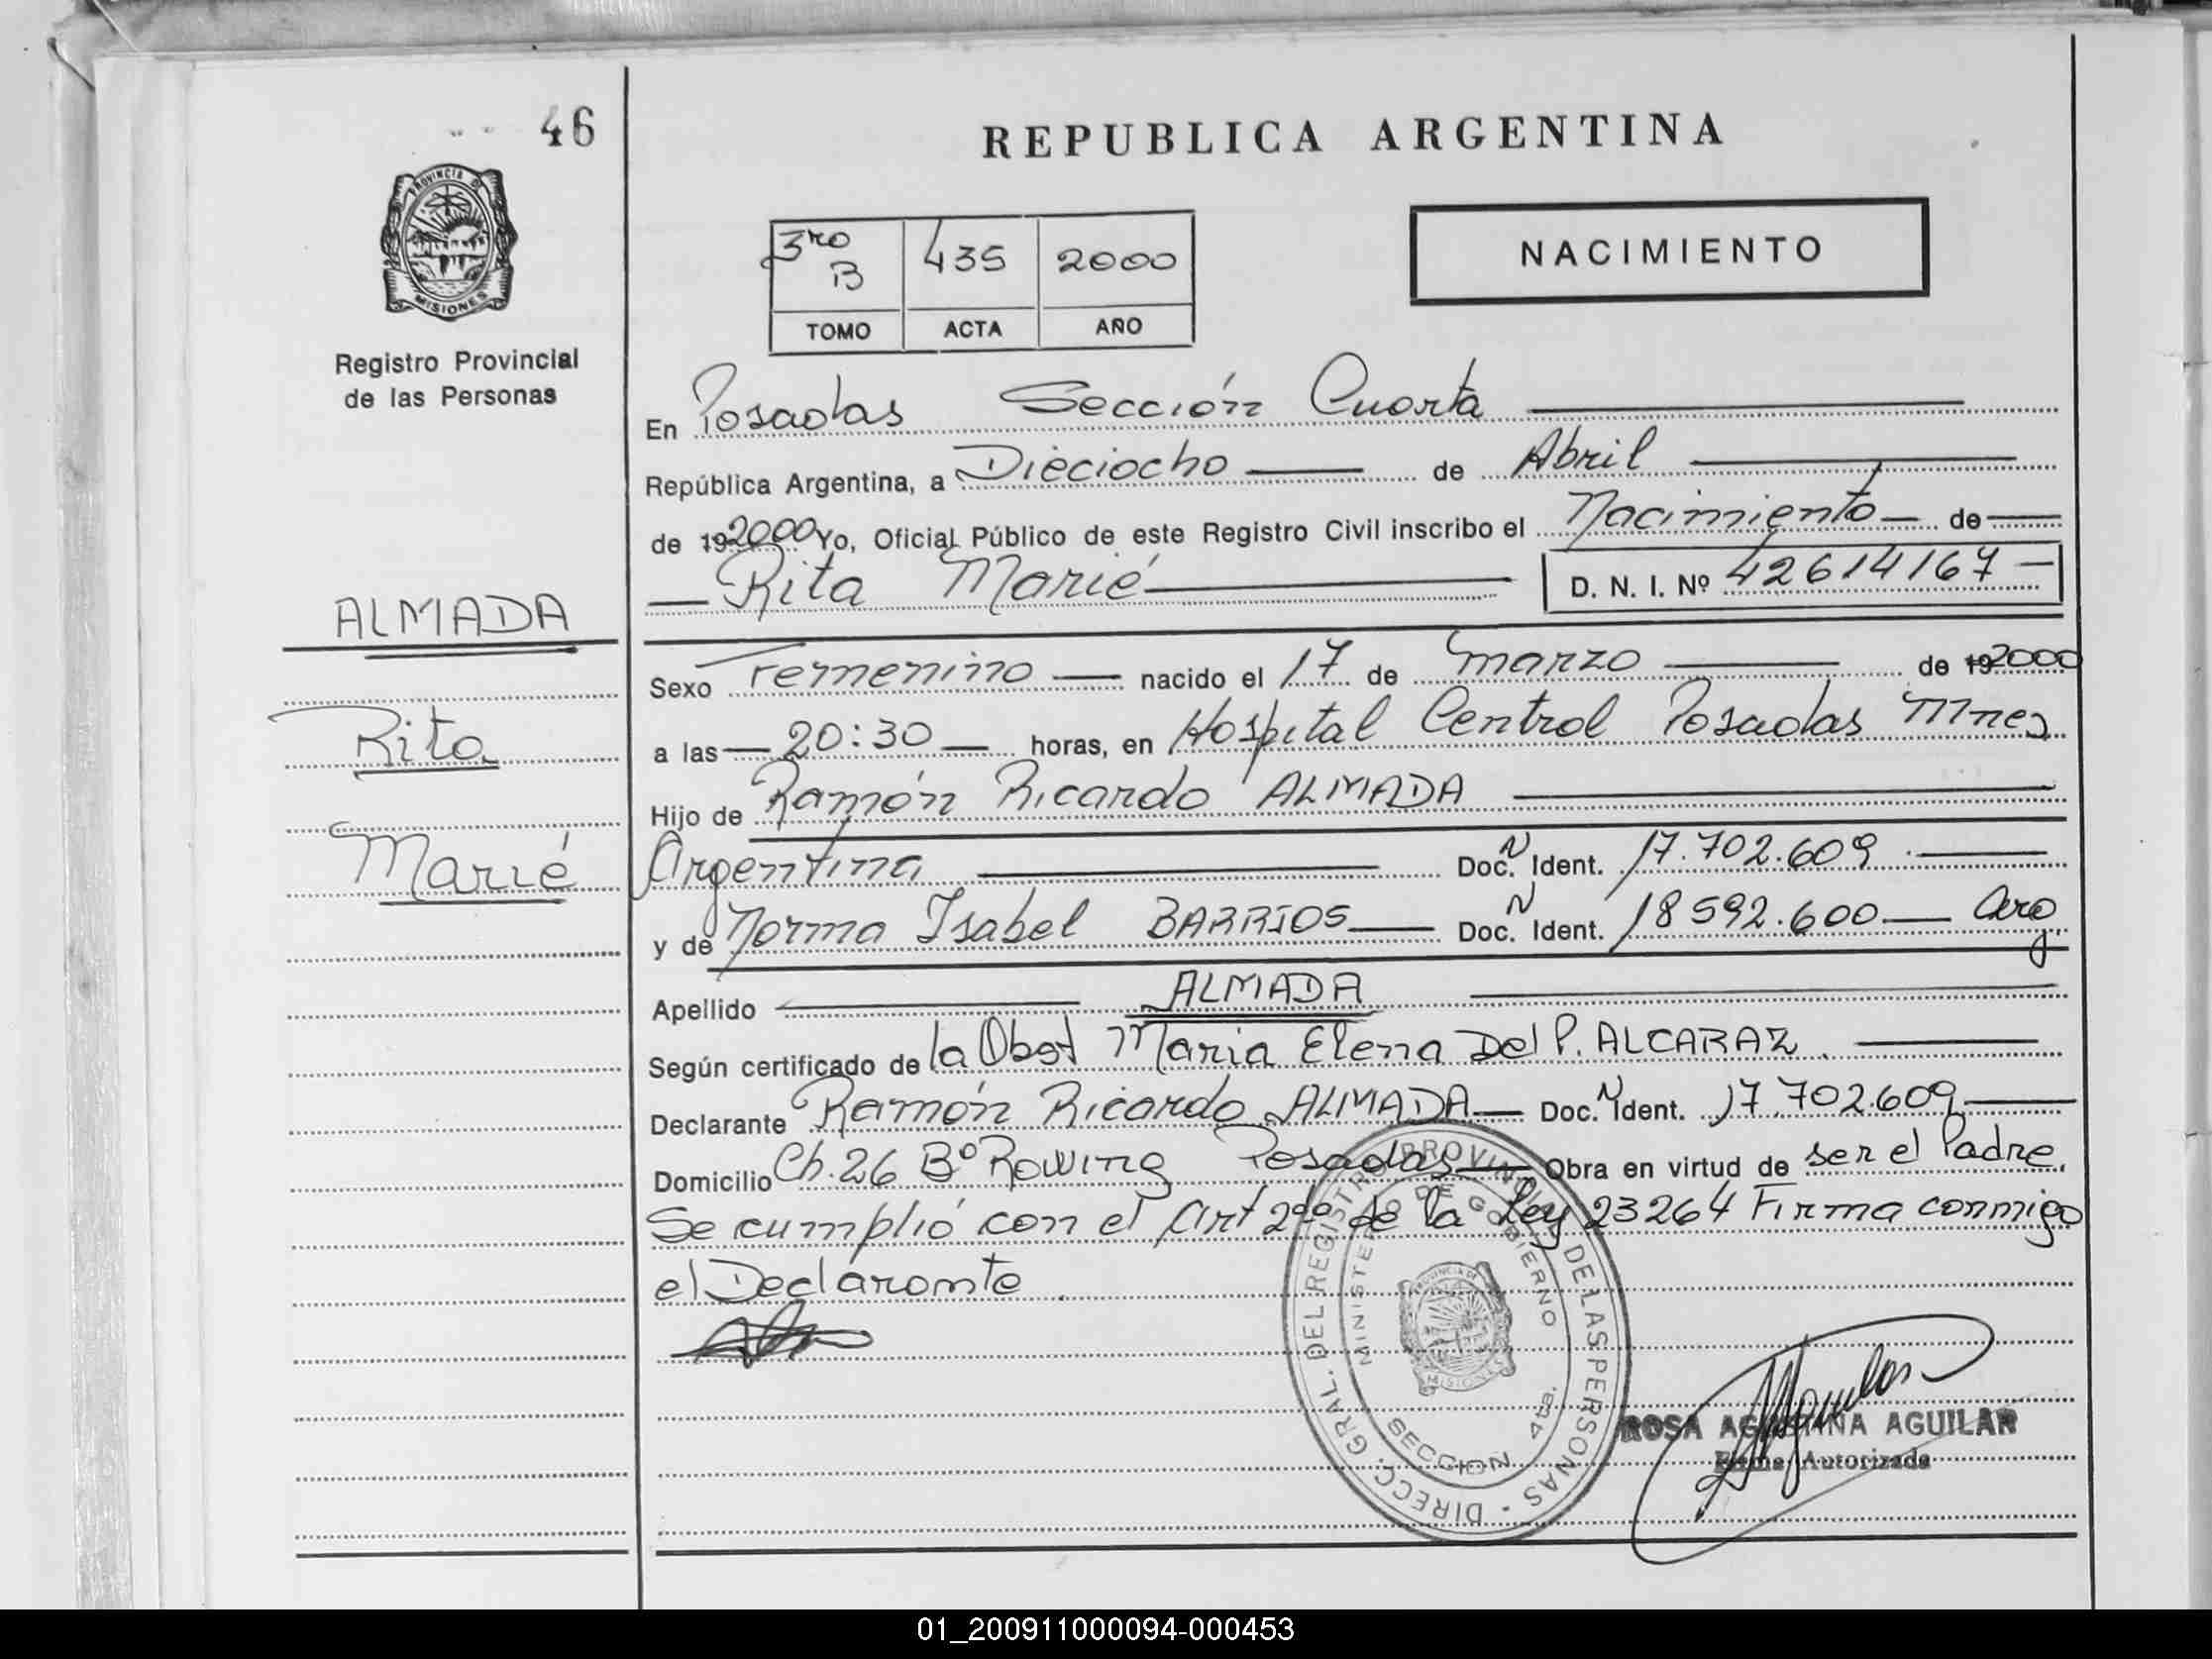 46
REPUBLICA ARGENTINA
PROVINCIA DE
MISIONES
NACIMIENTO
3ro B 435 2000
TOMO ACTA AÑO
Registro Provincial
de las Personas
En Posadas Sección Cuarta
República Argentina, a Dieciocho de Abril
de 19 2000 Yo, Oficial Público de este Registro Civil inscribo el Nacimiento de
Rita Marié D. N. I. Nº 42614167
ALMADA
Rita
Marié
Sexo Femenino nacido el 17 de marzo de 19 2000
a las 20:30 horas, en Hospital Central Posadas Mnes
Hijo de Ramón Ricardo ALMADA
Argentina Doc. N Ident. 17.702.609
y de Norma Isabel BARRIOS Doc. N Ident. 18592.600 Arg
Apellido ALMADA
Según certificado de la Obst Maria Elena Del P. ALCARAZ
Declarante Ramón Ricardo ALMADA Doc. N Ident. 17.702.609
Domicilio Ch. 26 Bº Rowing Posadas Obra en virtud de ser el Padre.
Se cumplió con el Art 2do de la Ley 23264 Firma conmigo
el Declarante
DIRECC. GRAL. DEL REGISTRO PROVINCIAL DE LAS PERSONAS -
MINISTERIO DE GOBIERNO
MISIONES
SECCION 4ta.
ROSA AGUILAR
Firma Autorizada
01_200911000094-000453